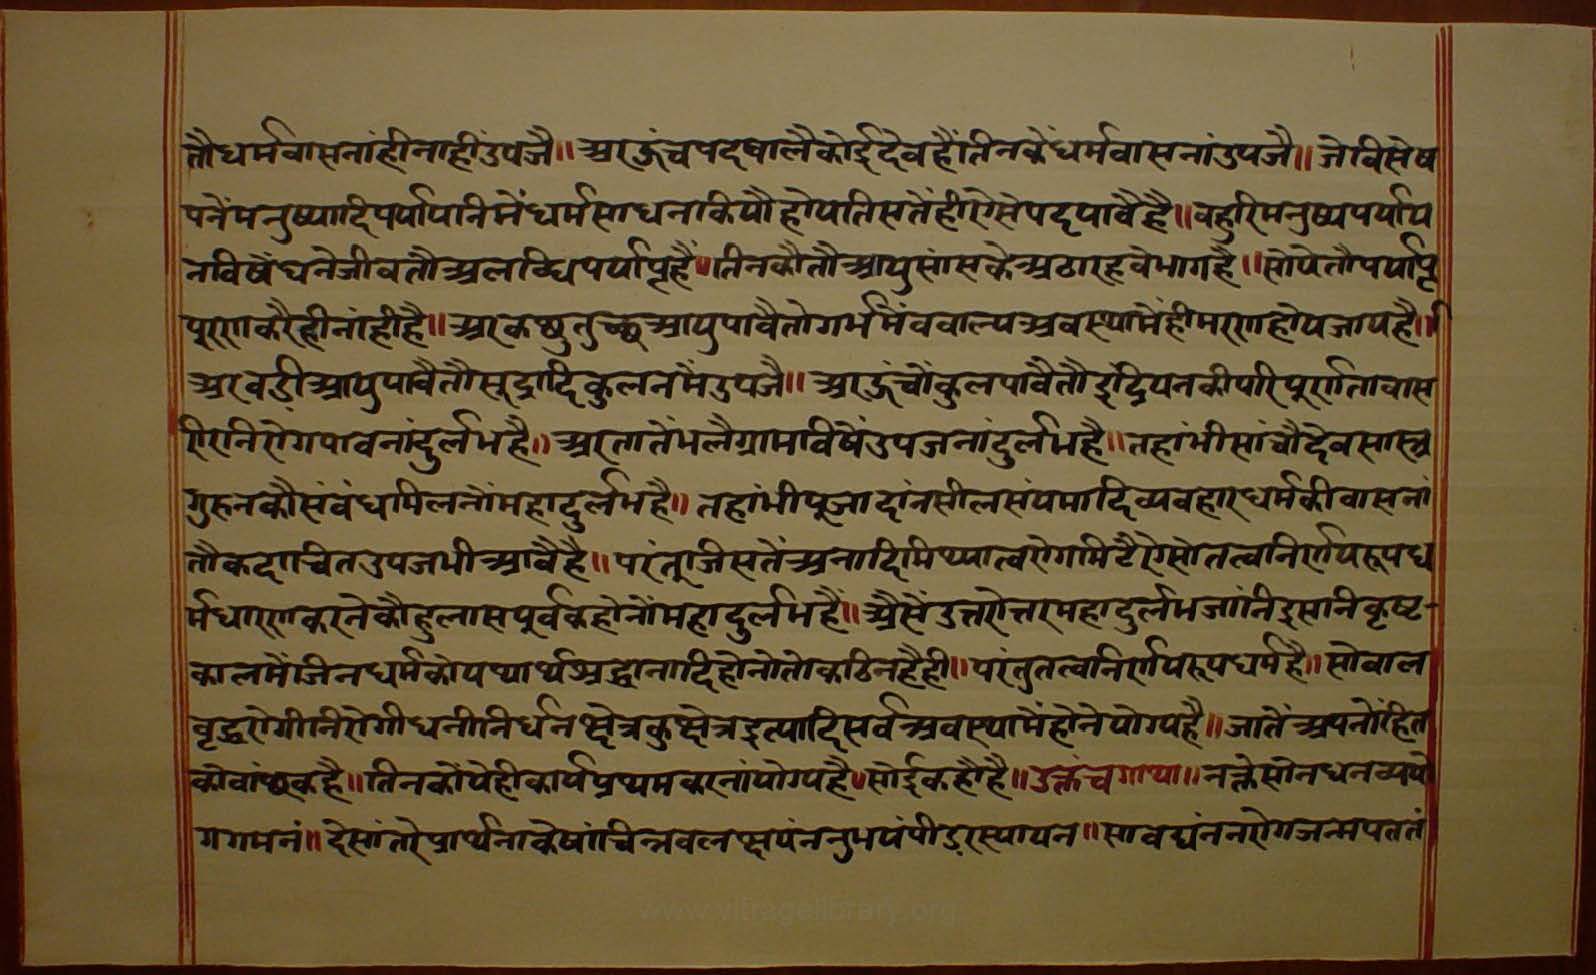 तौधर्मवासनांहीनाहींउपजै॥ अरऊंचपदवालैकोईदेवहैंतीनकेंधर्मवासनांउपजै॥ जेविसेष
पनेंमनुष्यादिपर्यायानिमेंधर्मसाधनाकियौहोयतिसतेंहींऐसेपदपावैहै॥ बहुरिमनुष्यपर्याय
नविषेंघनेजीवतौअलब्धिपर्याप्तहैं॥तीनकौतौआयुसांसकेअठारहवेभागहै॥ सोयेतौपर्याप्त
पूरणकरैहीनांहीहै॥ अरकछुतुच्छआयुपावैतोगर्भमेंववाल्यअवस्थामेंहीमरणहोयजायहै॥
अरवडीआयुपावैतौसूद्रादिकुलनमेंउपजै॥ अरऊंचोंकुलपावैतौइंद्रियनकीपरिपूर्णतावास
रीरनिरोगपावनांदुर्लभहै॥ अरतातेंभलैग्रामविषेंउपजनांदुर्लभहै॥ तहांभीसांचौदेवसास्त्र
गुरुनकौसंवंधमिलनौंमहादुर्लभहै॥ तहांभीपूजादांनसीलसंयमादिव्यवहारधर्मकीवासनां
तौकदाचितउपजभीआवैहै॥ परंतुजिसतेंअनादिमिथ्यात्वरोगमिटैऐसोतत्वनिर्णयरूपध
र्मधारणकरनेकौहुलासपूर्वकहोनौंमहादुर्लभहैं॥ अैसेंउत्तरोत्तरमहादुर्लभजांनिइसनिकृष्ट-
कालमेंजिनधर्मकोयथार्थश्रद्धानादिहोनोतोकठिनहैही॥ परंतुतत्वनिर्णयरूपधर्महै॥ सोवाल
वृद्धरोगीनिरोगीधनीनिर्धनक्षेत्रकुक्षेत्रइत्यादिसर्वअवस्थामेंहोनेयोग्यहै॥ जातेंअपनोंहित
कोवांछकहै॥ तिनकोंयेहीकार्यप्रथमकरनांयोग्यहै॥सोईकहौहै॥ उक्तंचगाथा॥ नक्लेसोनधनव्ययो
गगमनं॥ देसांतरेप्रार्थनाकेषांचिन्नवलक्षयंननुभयंपीडरस्थायन॥ सावद्यंननरोगजन्मपततं